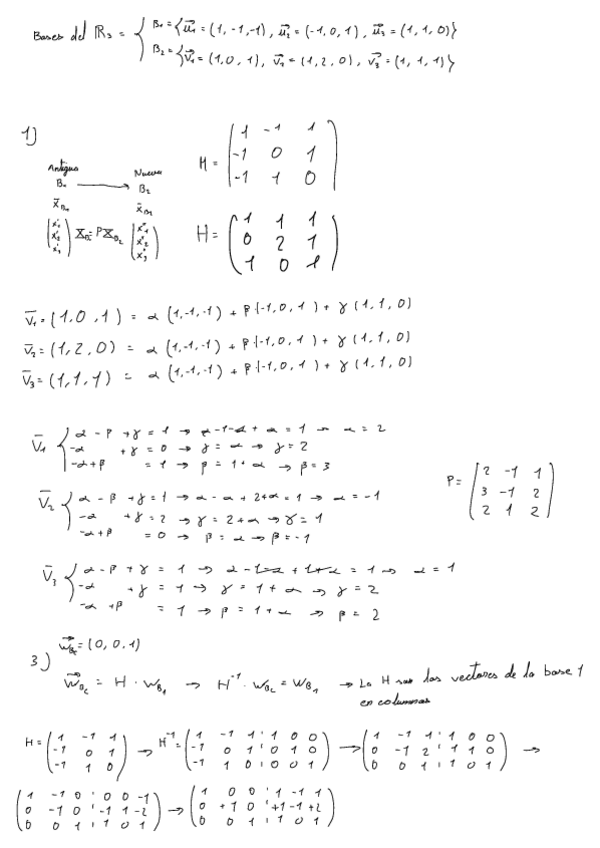 Bases del ℝ₃ = { B₁ = {u⃗₁ = (1, -1, -1), u⃗₂ = (-1, 0, 1), u⃗₃ = (1, 1, 0)}
B₂ = {v⃗₁ = (1, 0, 1), v⃗₂ = (1, 2, 0), v⃗₃ = (1, 1, 1)}
1)
Antigua Nueva
B₁ → B₂
x̄_B₁ x̄_B₂
X_B₁ = P X_B₂
H = (1 -1 1
-1 0 1
-1 1 0)
H = (1 1 1
0 2 1
1 0 1)
v̄₁ = (1, 0, 1) = α (1,-1,-1) + β (-1, 0, 1) + γ (1, 1, 0)
v̄₂ = (1, 2, 0) = α (1,-1,-1) + β (-1, 0, 1) + γ (1, 1, 0)
v̄₃ = (1, 1, 1) = α (1,-1,-1) + β (-1, 0, 1) + γ (1, 1, 0)
v̄₁ { α - β + γ = 1 → α - 1 - α + α = 1 → α = 2
-α + γ = 0 → γ = α → γ = 2
-α + β = 1 → β = 1 + α → β = 3
P = [2 -1 1
3 -1 2
2 1 2]
v̄₂ { α - β + γ = 1 → α - α + 2 + α = 1 → α = -1
-α + γ = 2 → γ = 2 + α → γ = 1
-α + β = 0 → β = α → β = -1
v̄₃ { α - β + γ = 1 → α - 1 - α + 1 + α = 1 → α = 1
-α + γ = 1 → γ = 1 + α → γ = 2
-α + β = 1 → β = 1 + α → β = 2
3) w⃗_Bc = (0, 0, 1)
w⃗_Bc = H · w_B₁ → H⁻¹ · w_Bc = w_B₁ → La H son los vectores de la base 1
en columnas
H = (1 -1 1
-1 0 1
-1 1 0) → H⁻¹ = (1 -1 1 : 1 0 0
-1 0 1 : 0 1 0
-1 1 0 : 0 0 1) → (1 -1 1 : 1 0 0
0 -1 2 : 1 1 0
0 0 1 : 1 0 1) →
(1 -1 0 : 0 0 -1
0 -1 0 : -1 1 -2
0 0 1 : 1 0 1) → (1 0 0 : 1 -1 1
0 +1 0 : +1 -1 +2
0 0 1 : 1 0 1)